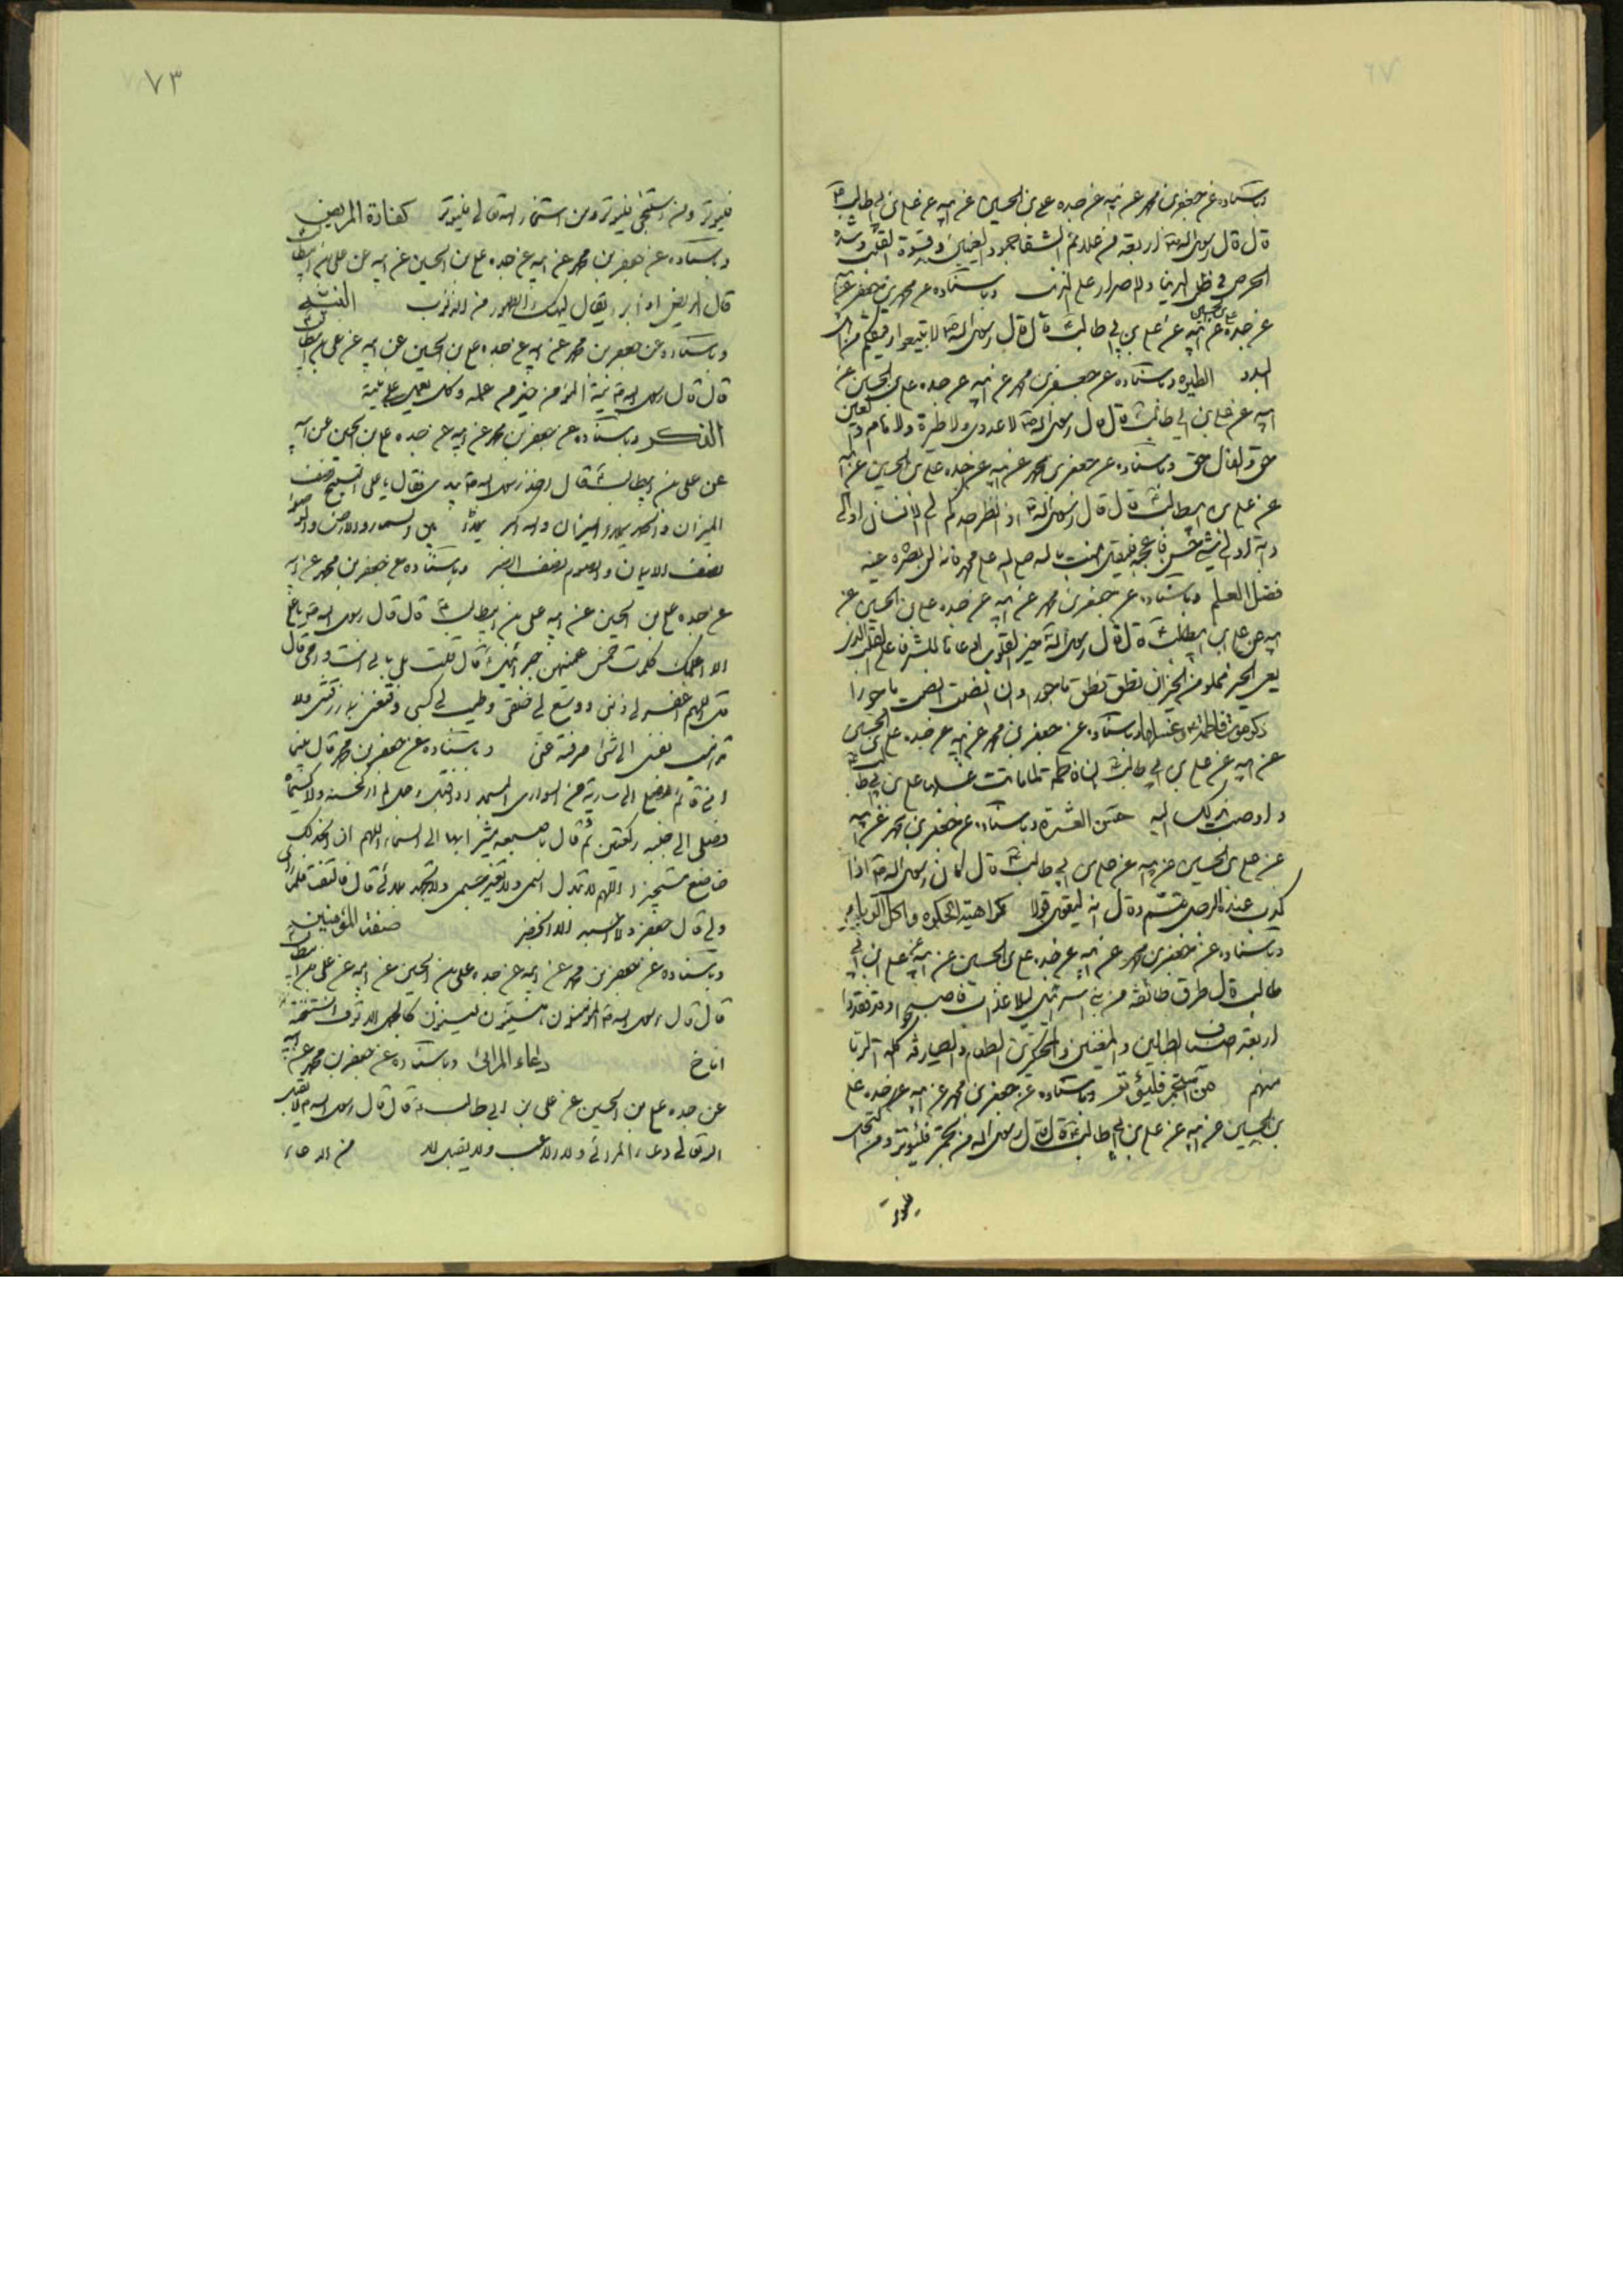 وباسناده عن جعفر بن محمد عن ابيه عن جده علي بن الحسين عن ابيه عن علي بن ابي طالب ع
قال قال رسول الله ص اربعة من علائم الشقا جمود العينين وقسوة القلب وشدة
الحرص في طلب الدنيا والاصرار على الذنب وباسناده عن محمد بن جعفر عن ابيه
عن جده علي بن الحسين عن ابيه عن علي بن ابي طالب ع قال قال رسول الله ص لا تتبعوا
الطيره وباسناده عن جعفر بن محمد عن ابيه عن جده علي بن الحسين عن
ابيه عن علي بن ابي طالب ع قال قال رسول الله ص لا عدوى ولا طيرة ولا هام والعين
حق والفال حق وباسناده عن جعفر بن محمد عن ابيه عن جده علي بن الحسين عن ابيه
عن علي بن ابيطالب ع قال قال رسول الله ص اذا نظر احدكم الى انسان او الى
دابة او الى شيء حسن فاعجبه فليقل امنت بالله صلى الله على محمد فانه لا يضره عينه
فضل العلم وباسناده عن جعفر بن محمد عن ابيه عن جده علي بن الحسين عن
ابيه عن علي بن ابيطالب ع قال قال رسول الله ص خير القلوب
يعي الخير مملو من الخير ان نطق نطق ماجورا وان انصت انصت ماجورا
ذكر موت فاطمة ع وغسلها وباسناده عن جعفر بن محمد عن ابيه عن جده علي بن الحسين
عن ابيه عن علي بن ابي طالب ع ان فاطمة لما ماتت غسلها علي بن ابي طالب ع
واوصت بذلك اليه حسن العشرة وباسناده عن جعفر بن محمد عن ابيه
عن علي بن الحسين عن ابيه عن علي بن ابي طالب ع قال كان رسول الله ص اذا
كذب عنده الرجل تبسم وقال انه ليقول قولا كراهية الحكره واكل الربا
وباسناده عن جعفر بن محمد عن ابيه عن جده علي بن الحسين عن ابيه عن علي بن ابي
طالب قال طرق طائفة من بني اسرائيل ليلا عذاب فاصبحوا وقد فقدوا
اربعة اصناف الطبالين والمغنين والمحتكرين الطعام والصيارفة اكلة الربا
منهم من استجمر فليوتر وباسناده عن جعفر بن محمد عن ابيه عن جده علي
بن الحسين عن ابيه عن علي بن ابي طالب ع قال قال رسول الله من تجمر فليوتر ومن اكتحل
فليوتر
٧٣
فليوتر ومن استنجى فليوتر ومن استخار الله تعالى فليوتر كفارة المريض
وباسناده عن جعفر بن محمد عن ابيه عن جده علي بن الحسين عن ابيه عن علي بن ابيطالب ع
قال المريض اذا برء يقال ليهنك الطهور من الذنوب النية
وباسناده عن جعفر بن محمد عن ابيه عن جده علي بن الحسين عن ابيه عن علي بن ابيطالب ع
قال قال رسول الله ص نية المؤمن خير من عمله وكل يعمل على نيته
الذكر وباسناده عن جعفر بن محمد عن ابيه عن جده علي بن الحسين عن ابيه
عن علي بن ابيطالب ع قال اخذ رسول الله ص بيدي فقال يا علي التسبيح نصف
الميزان والحمد لله يملاء الميزان والله اكبر يملاء بين السماء والارض والوضوء
نصف الايمان والصوم نصف الصبر وباسناده عن جعفر بن محمد عن ابيه
عن جده علي بن الحسين عن ابيه علي بن ابيطالب ع قال قال رسول الله ص يا علي
الا اعلمك كلمات خمس علمنيهن جبرائيل ع قال قلت بلى بابي انت وامي قال
قل اللهم اغفر لي ذنبي ووسع لي خلقي وطيب لي كسبي وقنعني بما رزقتني ولا
تذهب نفسي الى شيء صرفته عني وباسناده عن جعفر بن محمد قال بينما
ابي قائم يصلي الى سارية من سواري المسجد اذ اقبل رجل لم ار كحسنه ولا كسيماه
فصلى الى جنبه ركعتين ثم قال باصبعه يشير بها الى السماء اللهم اني عبدك
خاضع مستجير اللهم لا تبدل اسمي ولا تغير جسمي ولا تجهد بلائي قال فالتفت فلم ار
ولي قال جعفر ولا احسبه الا الخضر صفة المؤمنين
وباسناده عن جعفر بن محمد عن ابيه عن جده علي بن الحسين عن ابيه عن علي بن ابيطالب ع
قال قال رسول الله ص المؤمنون هينون لينون كالجمل الانوف ان استنخته
اناخ دعاء المرائي وباسناده عن جعفر بن محمد عن ابيه
عن جده علي بن الحسين عن علي بن ابي طالب ع قال قال رسول الله ص لا يقبل
الله تعالى دعاء المرائي ولا اللاعب ولا يقبل الله من الدعاء